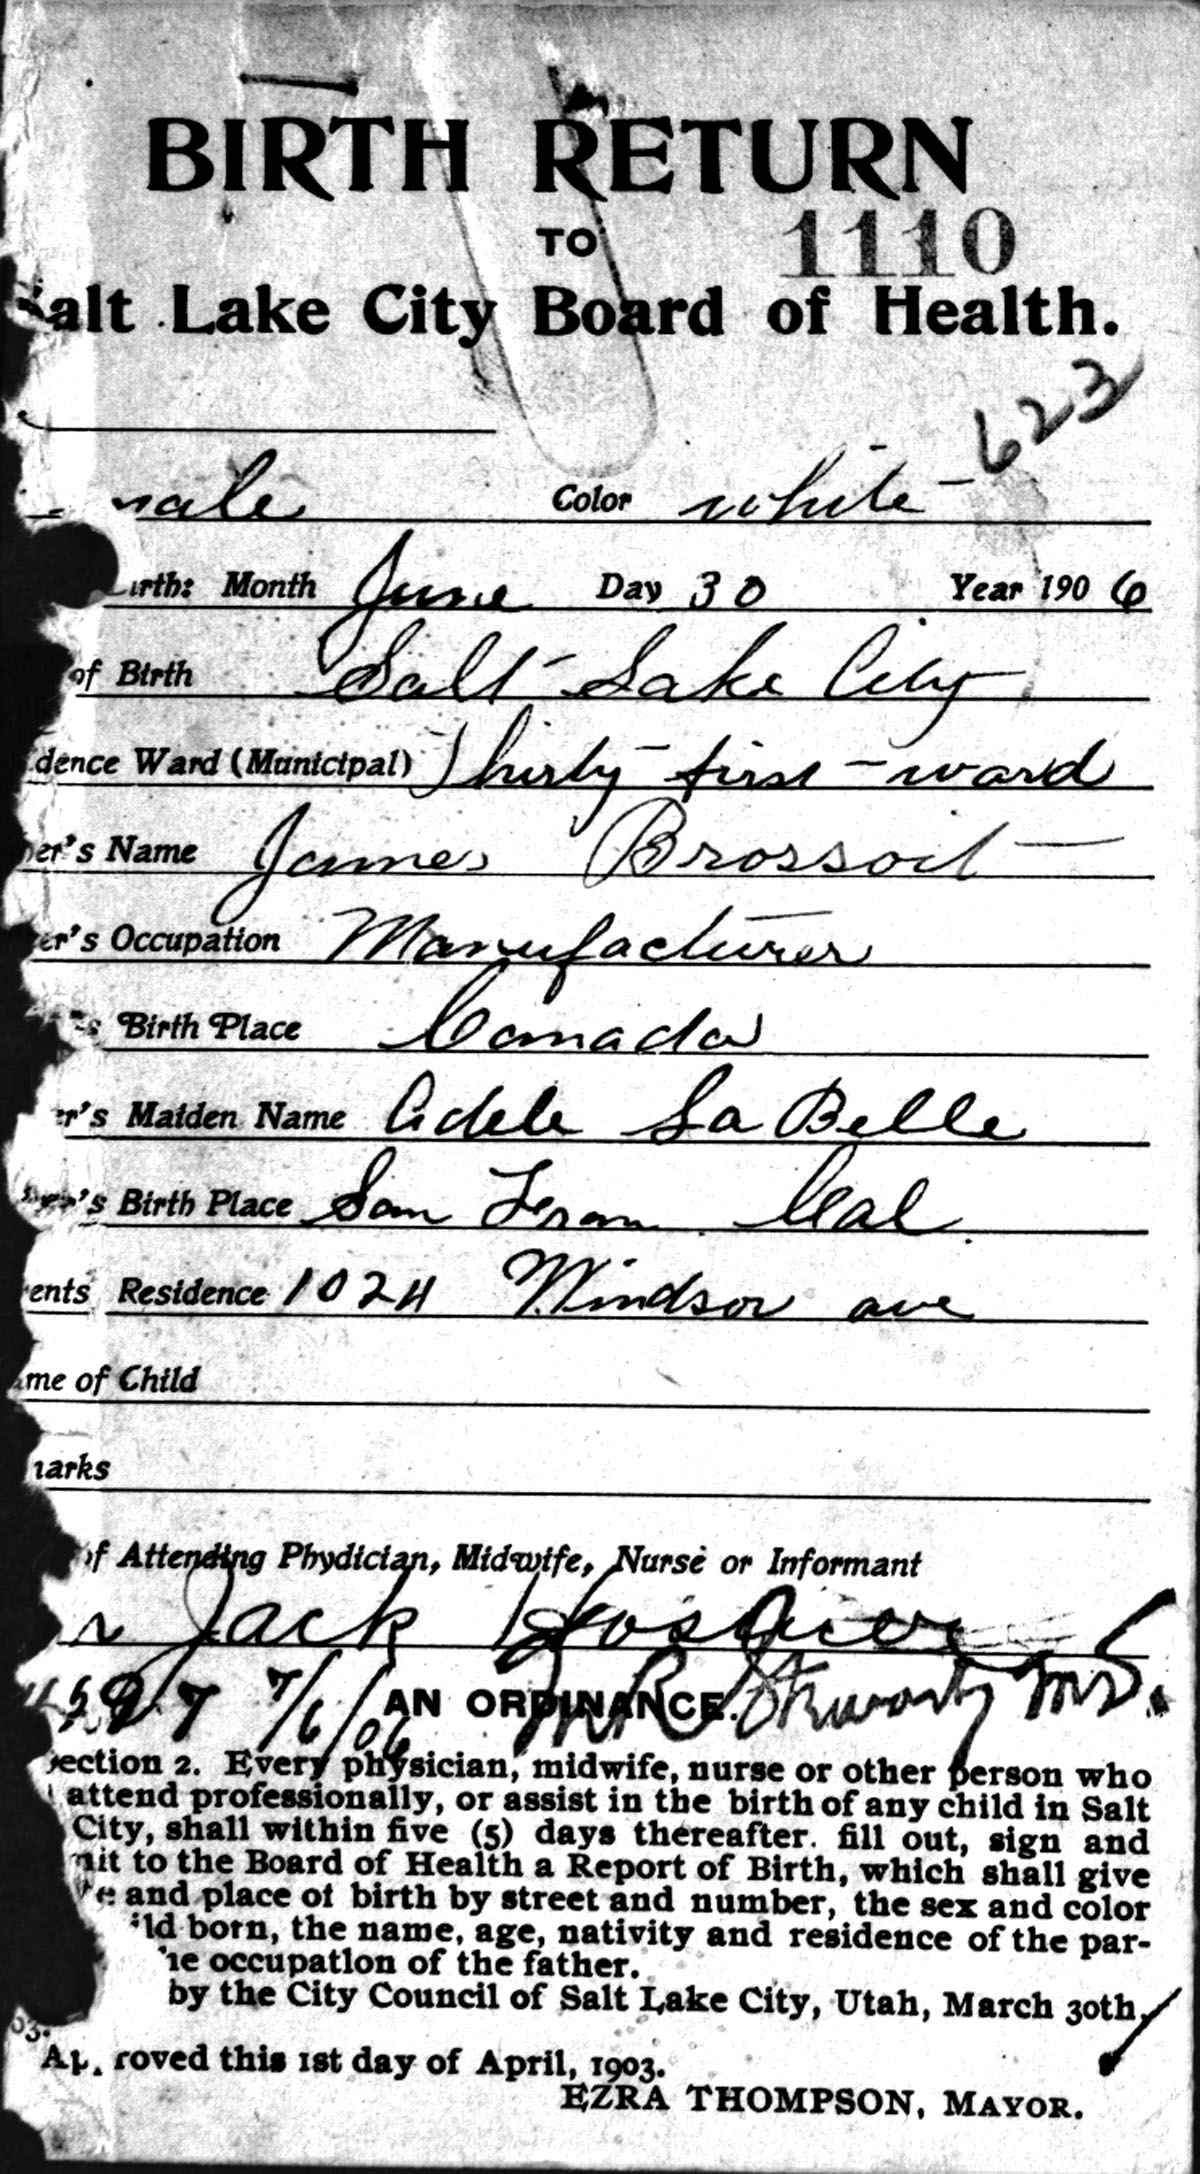 BIRTH RETURN
TO 1110
Salt Lake City Board of Health.
623
male Color white
irth: Month June Day 30 Year 1906
of Birth Salt Lake City
dence Ward (Municipal) Thirty first-ward
er's Name James Brossoit
er's Occupation Manufacturer
's Birth Place Canada
er's Maiden Name Adele La Belle
er's Birth Place San Fran. Cal.
ents Residence 1024 Windsor ave
me of Child
marks
of Attending Phydician, Midwife, Nurse or Informant
Jack
7/6/06 M.D.
AN ORDINANCE.
Section 2. Every physician, midwife, nurse or other person who
attend professionally, or assist in the birth of any child in Salt
City, shall within five (5) days thereafter. fill out, sign and
mit to the Board of Health a Report of Birth, which shall give
e and place of birth by street and number, the sex and color
ild born, the name, age, nativity and residence of the par-
he occupation of the father.
by the City Council of Salt Lake City, Utah, March 30th,
03.
Ap roved this 1st day of April, 1903.
EZRA THOMPSON, MAYOR.